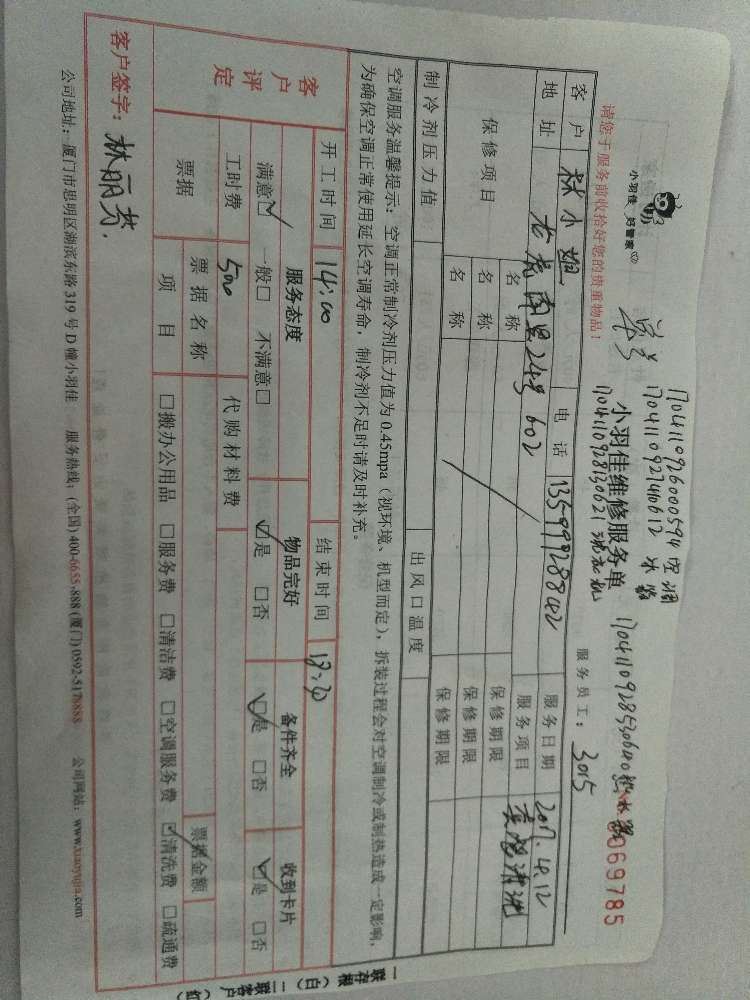 小羽佳 好管家
请您于服务前收拾好您的贵重物品！
单号
17041109260000594 空调
小羽佳维修服务单
服务员工： 3015
069785
客户 林小姐 电话 13599928842 服务日期 2017.4.12
地址 602 服务项目 清洗
保修项目 名称 保修期限
名称 保修期限
名称 保修期限
制冷剂压力值 出风口温度
空调服务温馨提示：空调正常制冷剂压力值为 0.45mpa（视环境、机型而定），拆装过程会对空调制冷或制热造成一定影响，
为确保空调正常使用延长空调寿命，制冷剂不足时请及时补充。
客户评定 开工时间 14:00 结束时间
服务态度 物品完好 备件齐全 收到卡片
满意☑ 一般□ 不满意□ ☑是 □否 ☑是 □否 ☑是 □否
工时费 500 代购材料费
票据 票据名称 票据金额
项目 □搬办公用品 □服务费 □清洁费 □空调服务费 ☑清洗费 □疏通费
客户签字：林丽芬
公司地址：厦门市思明区湖滨东路 319 号 D 幢小羽佳 服务热线：(全国) 400-6655-888 (厦门) 0592-5178888 公司网站：www.xiaoyujia.com
一联存根（白）二联客户（红）